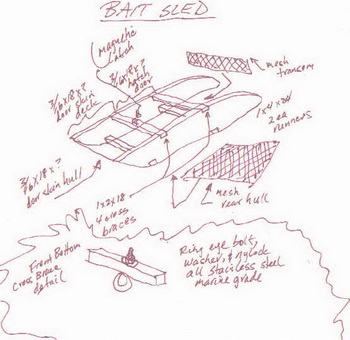 BAIT SLED
magnetic
latch
3/16x18x?
hatch
door
3/16x18x?
door skin
deck
mesh
transom
1x4x24
2 ea
runners
3/16x18x?
door skin hull
1x2x18
4 cross
braces
mesh
rear hull
Front Bottom
Cross Brace
detail
Ring eye bolt,
washer, & nylock
all stainless steel
marine grade